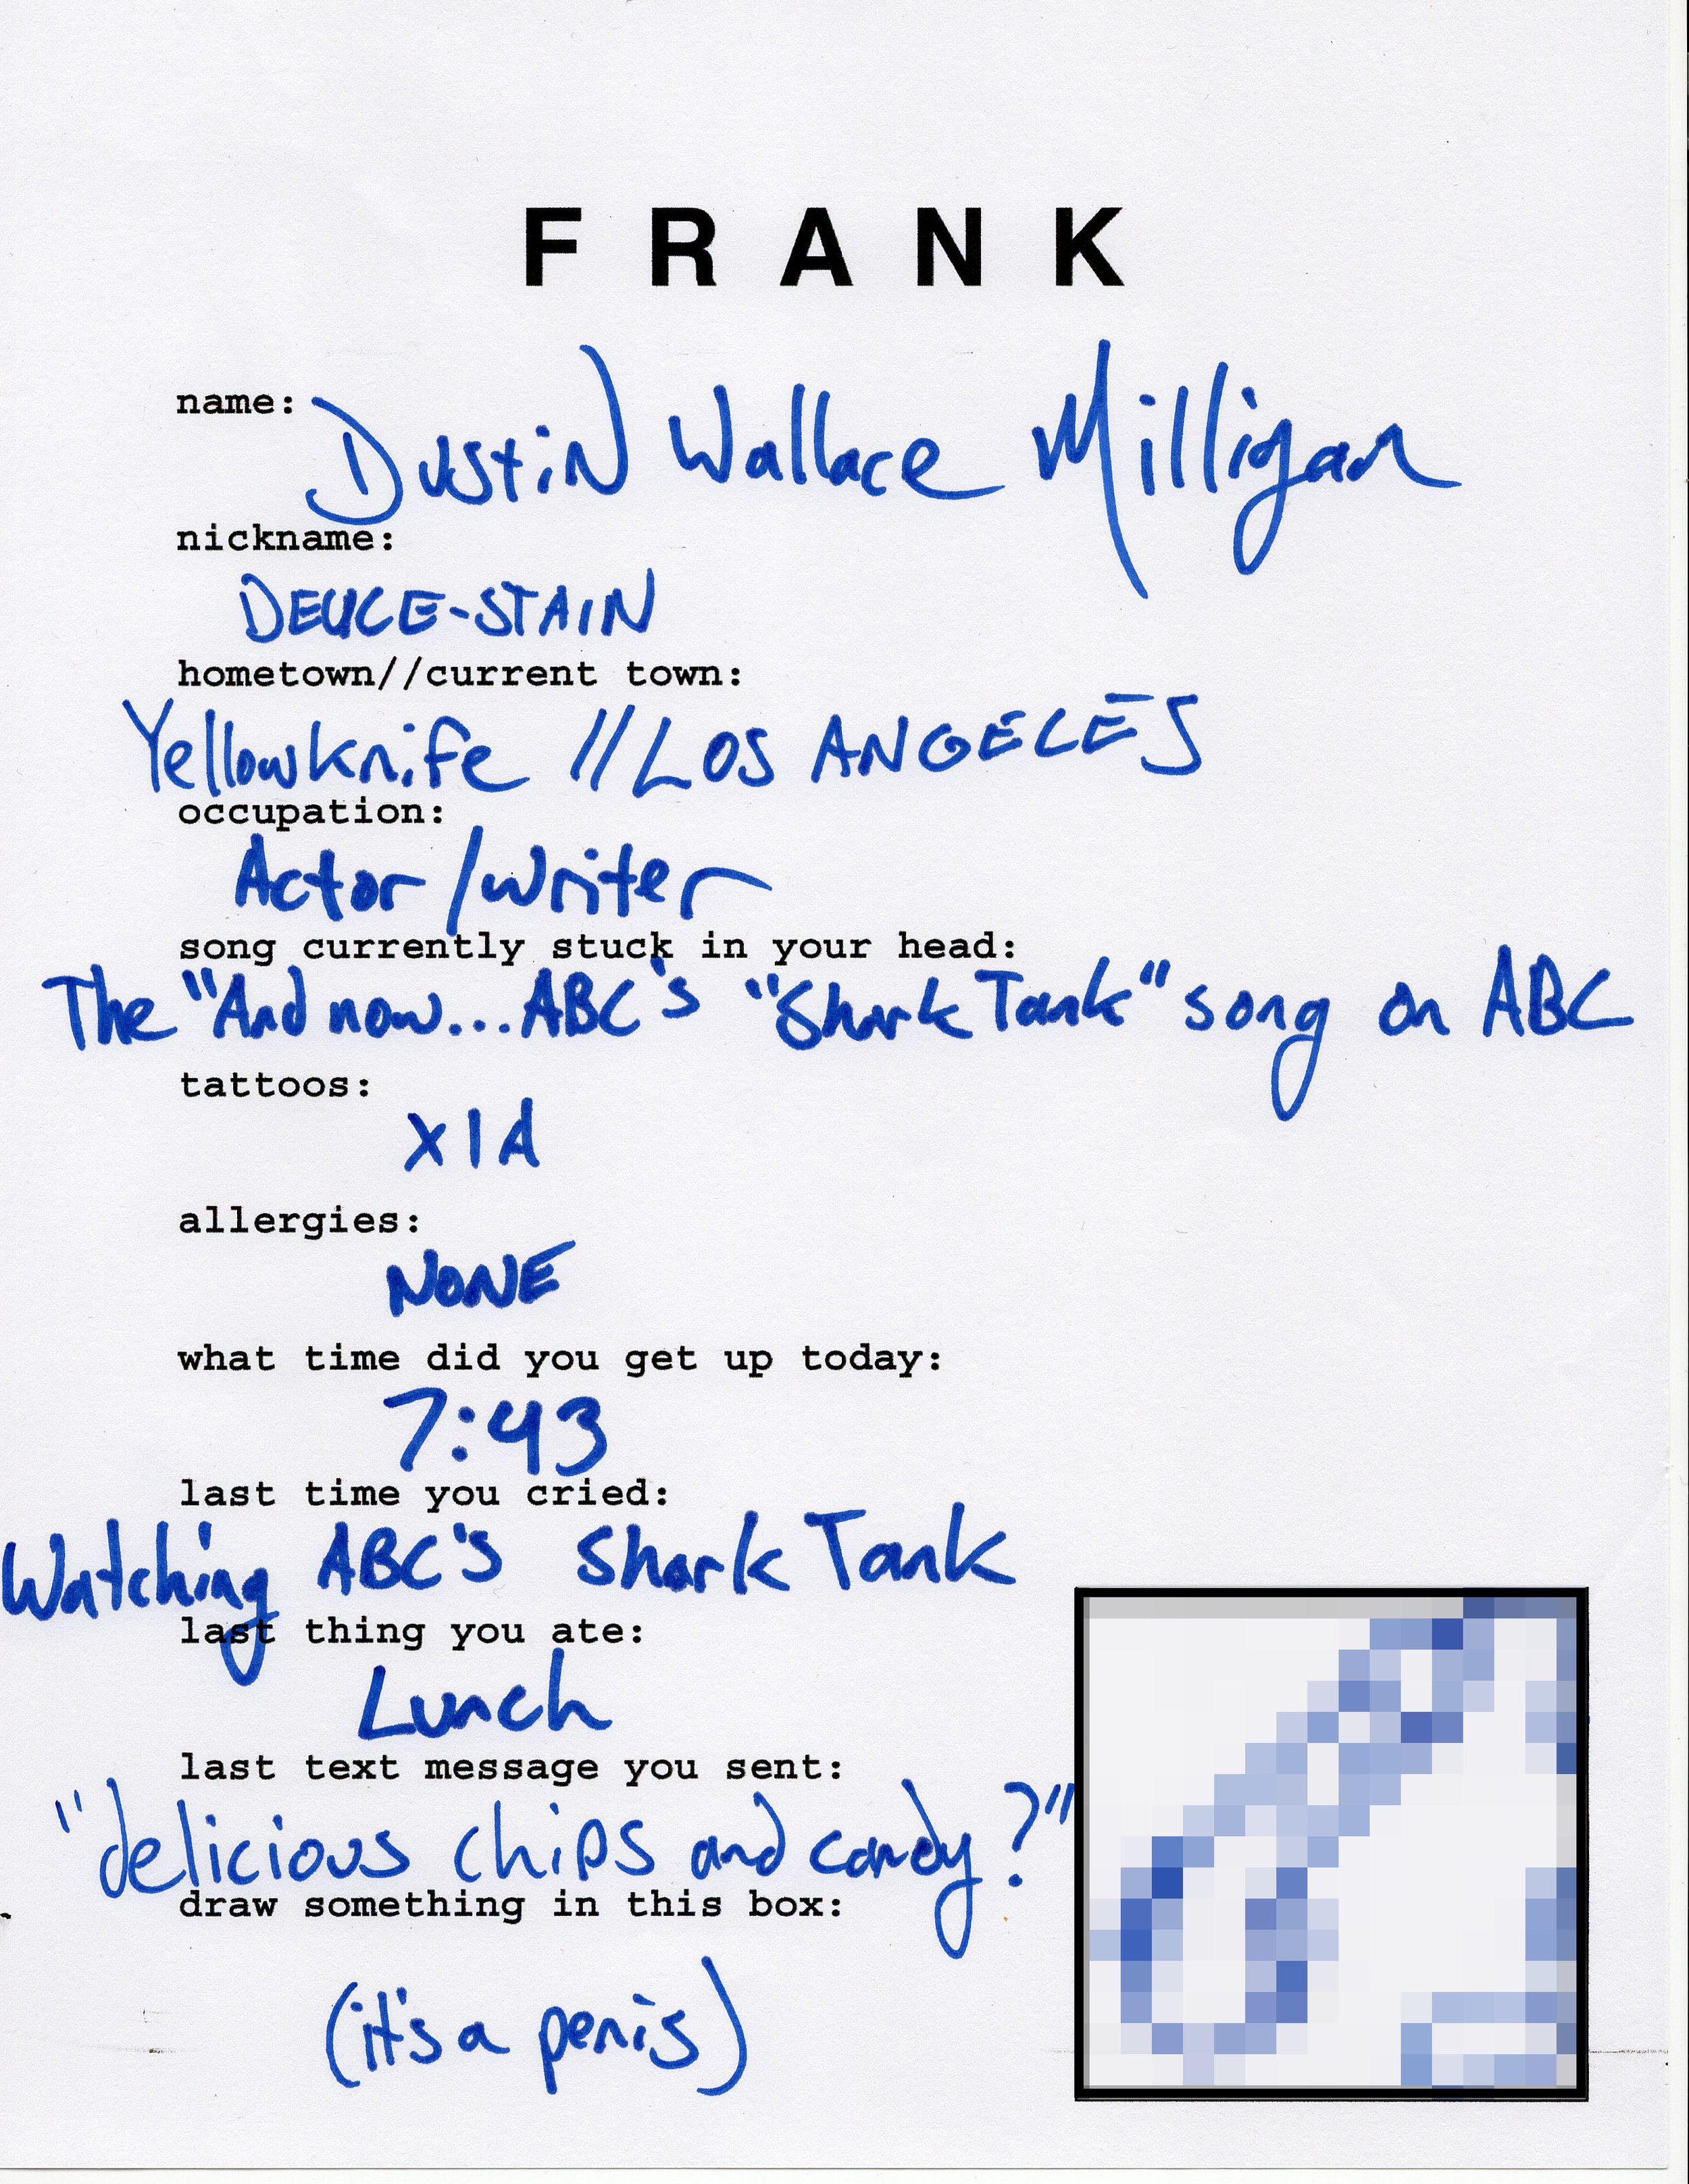 F R A N K
name: Dustin Wallace Milligan
nickname:
DEUCE-STAIN
hometown//current town:
Yellowknife // LOS ANGELES
occupation:
Actor/writer
song currently stuck in your head:
The "And now...ABC's "Shark Tank" song on ABC
tattoos:
X I A
allergies:
NONE
what time did you get up today:
7:43
last time you cried:
Watching ABC's Shark Tank
last thing you ate:
Lunch
last text message you sent:
"delicious chips and candy?"
draw something in this box:
(it's a penis)